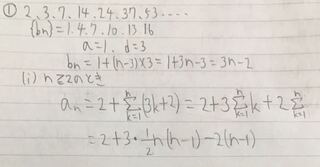 ① 2.3.7.14.24.37.53.....
{bn}=1.4.7.10.13.16
a=1. d=3
bn=1+(n-3)×3=1+3n-3=3n-2
(i) n≧2のとき
an=2+∑[k=1→n](3k+2)=2+3∑[k=1→n]k+2∑[k=1→n]
=2+3・1/2n(n-1)-2(n-1)